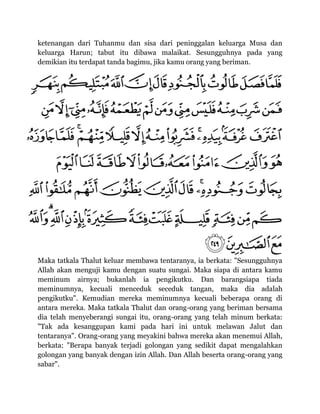 ketenangan dari Tuhanmu dan sisa dari peninggalan keluarga Musa dan
keluarga Harun; tabut itu dibawa malaikat. Sesungguhnya pada yang
demikian itu terdapat tanda bagimu, jika kamu orang yang beriman.
فَلَمَّا فَصَلَ طَالُوتُ بِالْجُنُودِ قَالَ إِنَّ اللَّهَ مُبْتَلِيكُم بِنَهَرٍ
فَمَن شَرِبَ مِنْهُ فَلَيْسَ مِنِّي وَمَن لَّمْ يَطْعَمْهُ فَإِنَّهُ مِنِّي إِلَّا مَنِ
اغْتَرَفَ غُرْفَةً بِيَدِهِ ۚ فَشَرِبُوا مِنْهُ إِلَّا قَلِيلًا مِّنْهُمْ ۚ فَلَمَّا جَاوَزَهُ
هُوَ وَالَّذِينَ آمَنُوا مَعَهُ قَالُوا لَا طَاقَةَ لَنَا الْيَوْمَ
بِجَالُوتَ وَجُنُودِهِ ۚ قَالَ الَّذِينَ يَظُنُّونَ أَنَّهُم مُّلَاقُو اللَّهِ
كَم مِّن فِئَةٍ قَلِيلَةٍ غَلَبَتْ فِئَةً كَثِيرَةً بِإِذْنِ اللَّهِ ۗ وَاللَّهُ
مَعَ الصَّابِرِينَ ﴿٢٤٩﴾
Maka tatkala Thalut keluar membawa tentaranya, ia berkata: "Sesungguhnya
Allah akan menguji kamu dengan suatu sungai. Maka siapa di antara kamu
meminum airnya; bukanlah ia pengikutku. Dan barangsiapa tiada
meminumnya, kecuali menceduk seceduk tangan, maka dia adalah
pengikutku". Kemudian mereka meminumnya kecuali beberapa orang di
antara mereka. Maka tatkala Thalut dan orang-orang yang beriman bersama
dia telah menyeberangi sungai itu, orang-orang yang telah minum berkata:
"Tak ada kesanggupan kami pada hari ini untuk melawan Jalut dan
tentaranya". Orang-orang yang meyakini bahwa mereka akan menemui Allah,
berkata: "Berapa banyak terjadi golongan yang sedikit dapat mengalahkan
golongan yang banyak dengan izin Allah. Dan Allah beserta orang-orang yang
sabar".